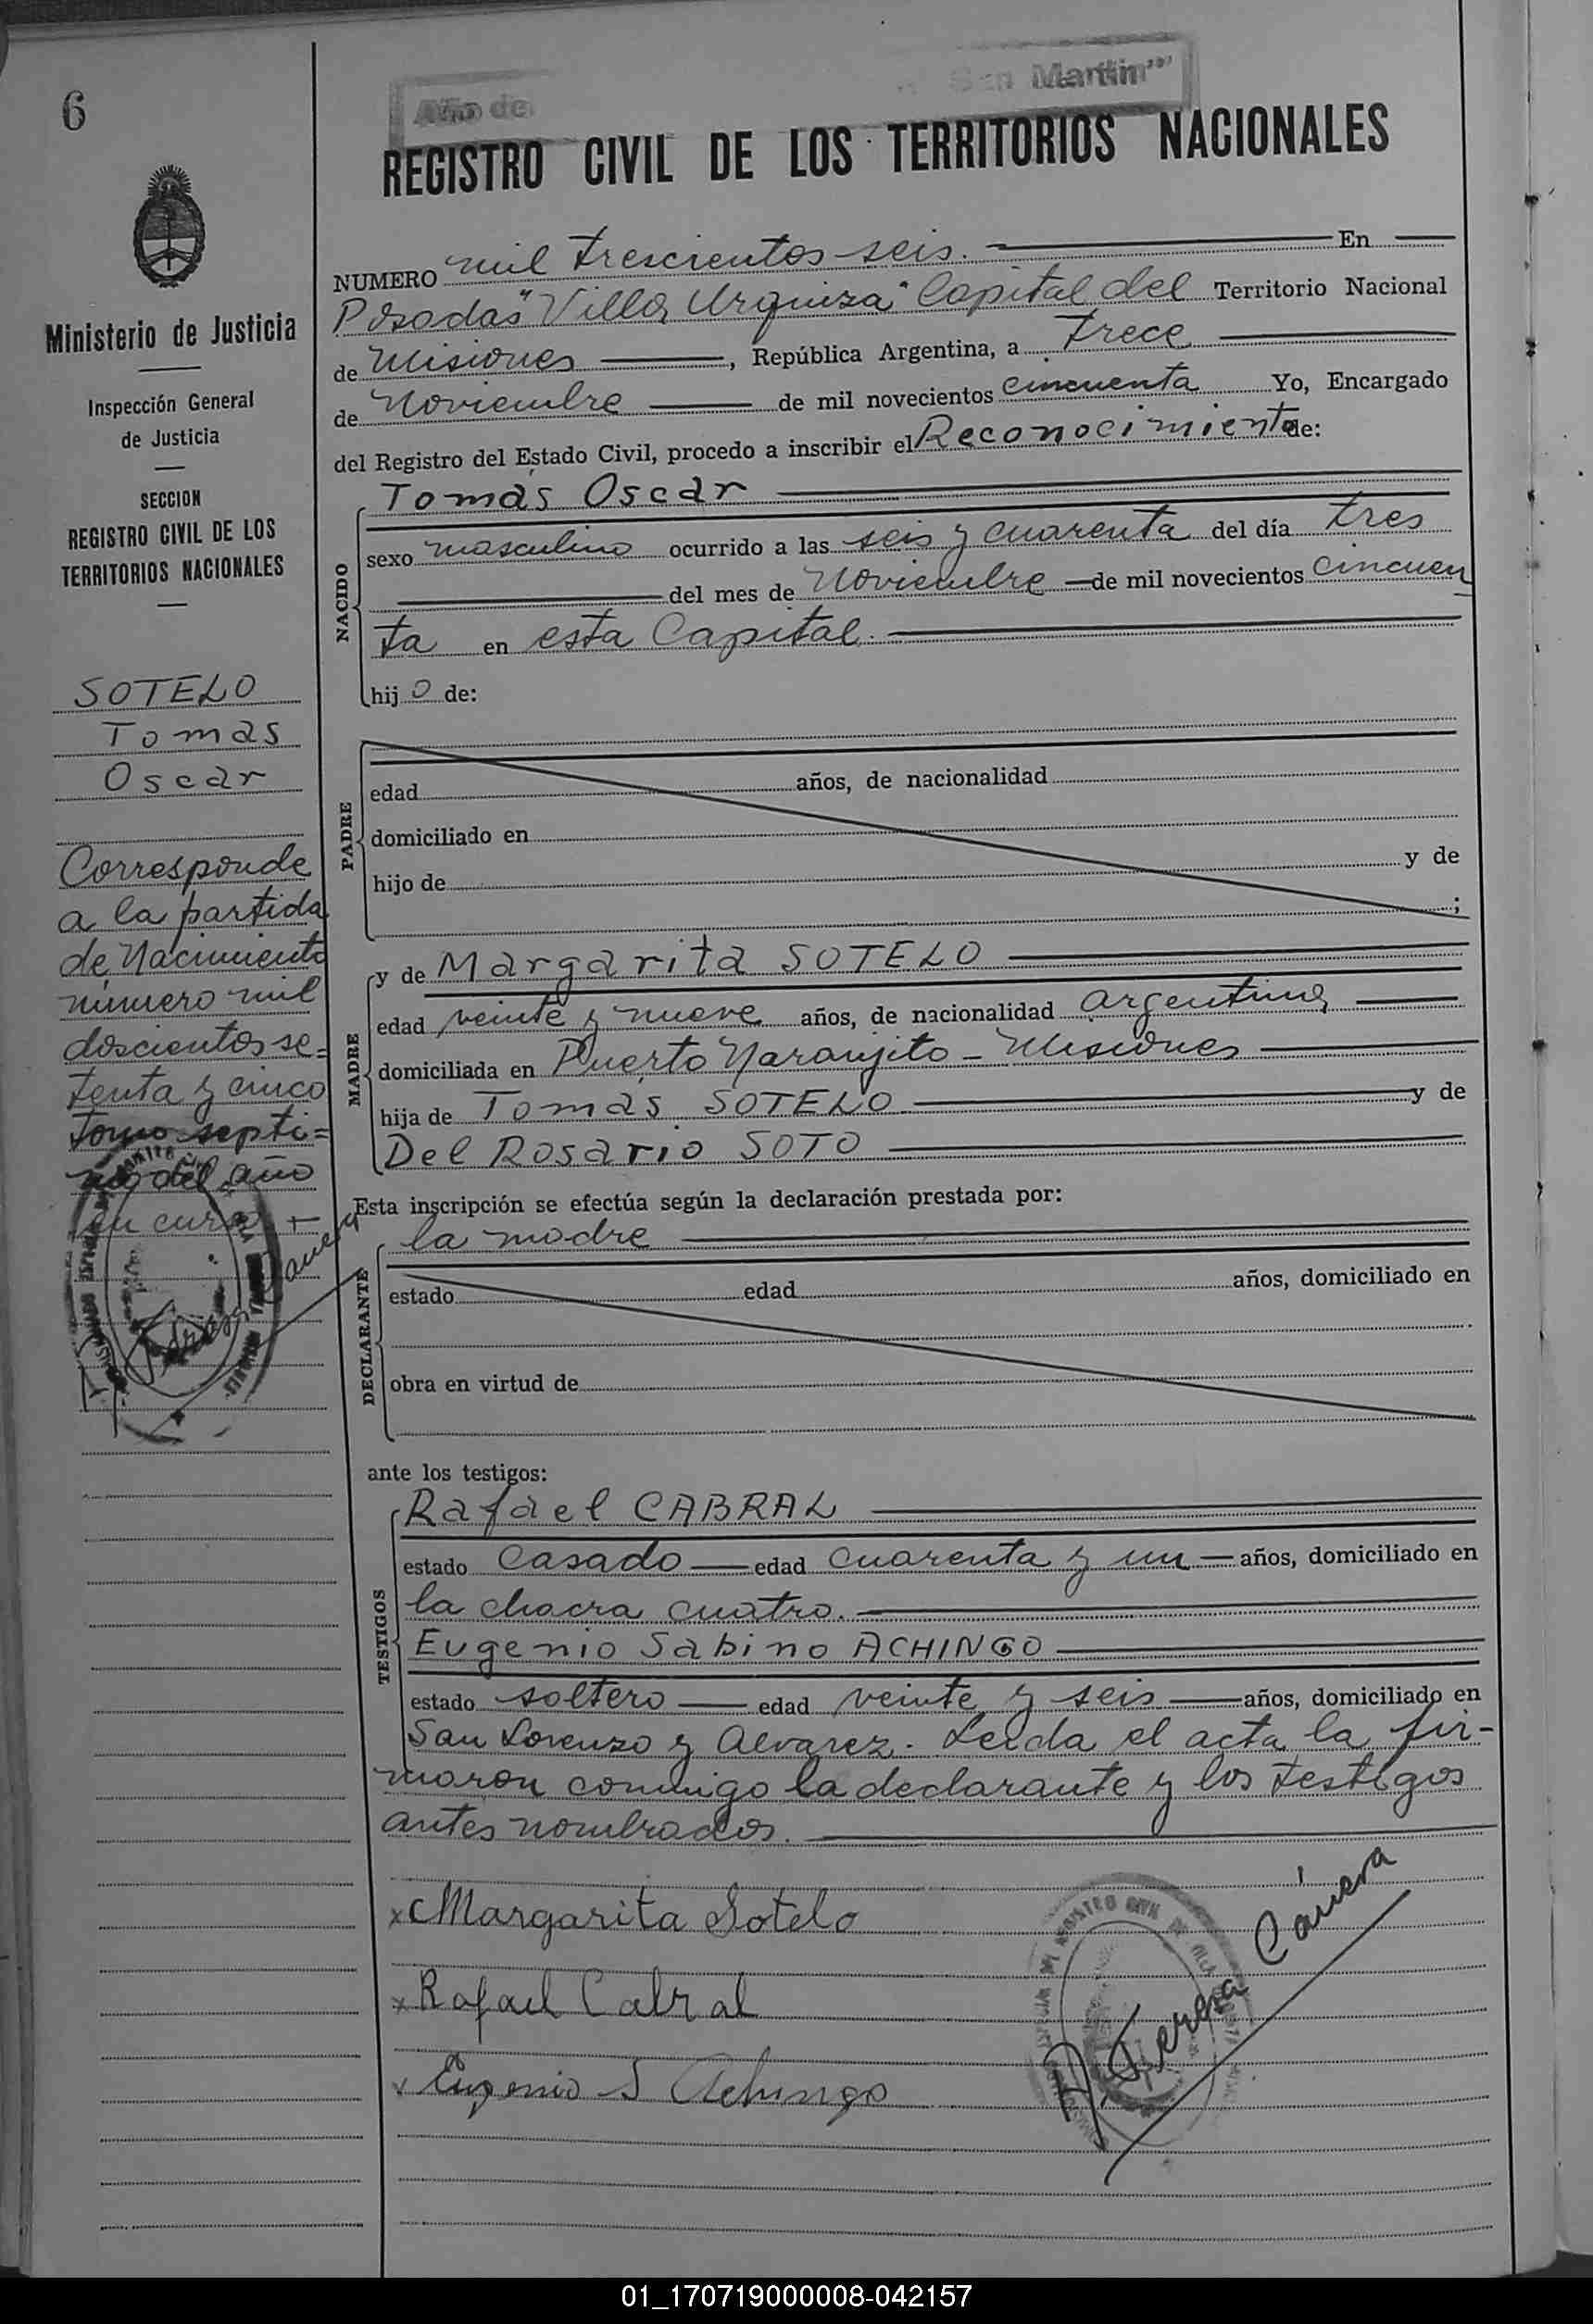 6
Año del
San Martín"
REGISTRO CIVIL DE LOS TERRITORIOS NACIONALES
Ministerio de Justicia
Inspección General
de Justicia
SECCION
REGISTRO CIVIL DE LOS
TERRITORIOS NACIONALES
SOTELO
Tomas
Oscar
Corresponde
a la partida
de Nacimiento
número mil
doscientos se=
tenta y cinco
tomo septi=
mo del año
en curso
NUMERO mil trescientos seis. En
Posadas "Villa Urquiza" Capital del Territorio Nacional
de Misiones, República Argentina, a trece
de Noviembre de mil novecientos cincuenta Yo, Encargado
del Registro del Estado Civil, procedo a inscribir el Reconocimiento de:
NACIDO
Tomas Oscar
sexo masculino ocurrido a las seis y cuarenta del día tres
del mes de Noviembre de mil novecientos cincuen
ta en esta Capital.
hijo de:
PADRE
edad años, de nacionalidad
domiciliado en
hijo de y de
;
MADRE
y de Margarita SOTELO
edad veinte y nueve años, de nacionalidad argentina
domiciliada en Puerto Naranjito - Misiones
hija de Tomas SOTELO y de
Del Rosario SOTO
Esta inscripción se efectúa según la declaración prestada por:
DECLARANTE
la madre
estado edad años, domiciliado en
obra en virtud de
ante los testigos:
TESTIGOS
Rafael CABRAL
estado casado edad cuarenta y un años, domiciliado en
la chacra cuatro.
Eugenio Sabino ACHINGO
estado soltero edad veinte y seis años, domiciliado en
San Lorenzo y Alvarez. Leida el acta la fir-
maron conmigo la declarante y los testigos
antes nombrados.
x Margarita Sotelo
x Rafael Cabral
x Eugenio S Achingo
Teresa Cánera
01_170719000008-042157